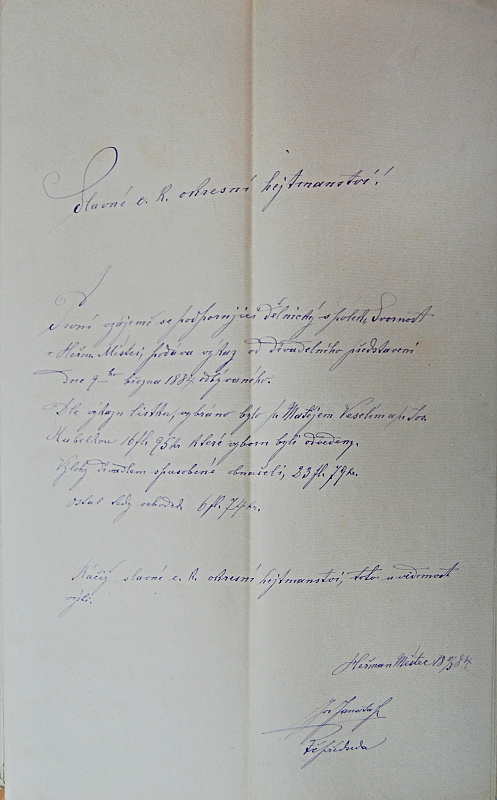 Slavné c. k. okresní hejtmanství!
První vzájemě se podporující dělnický spolek Svornost
v Heřm. Městci podává výkaz od divadelního představení
dne 9ho března 1884 odbývaného.
Dle výkazu lístků, vybráno bylo p. Matějem Veselým a p. Jos.
Kubelkou 16 fl. 95 kr. které výboru byli odvedeny.
Výlohy divadlem spůsobené obnášeli, 23 fl. 79 kr.
ostal tedy schodek 6 fl. 74 kr.
Račiž slavné c. k. okresní hejtmanství, toto u vědomost
Heřman Městec 18 84
Jos
Předseda